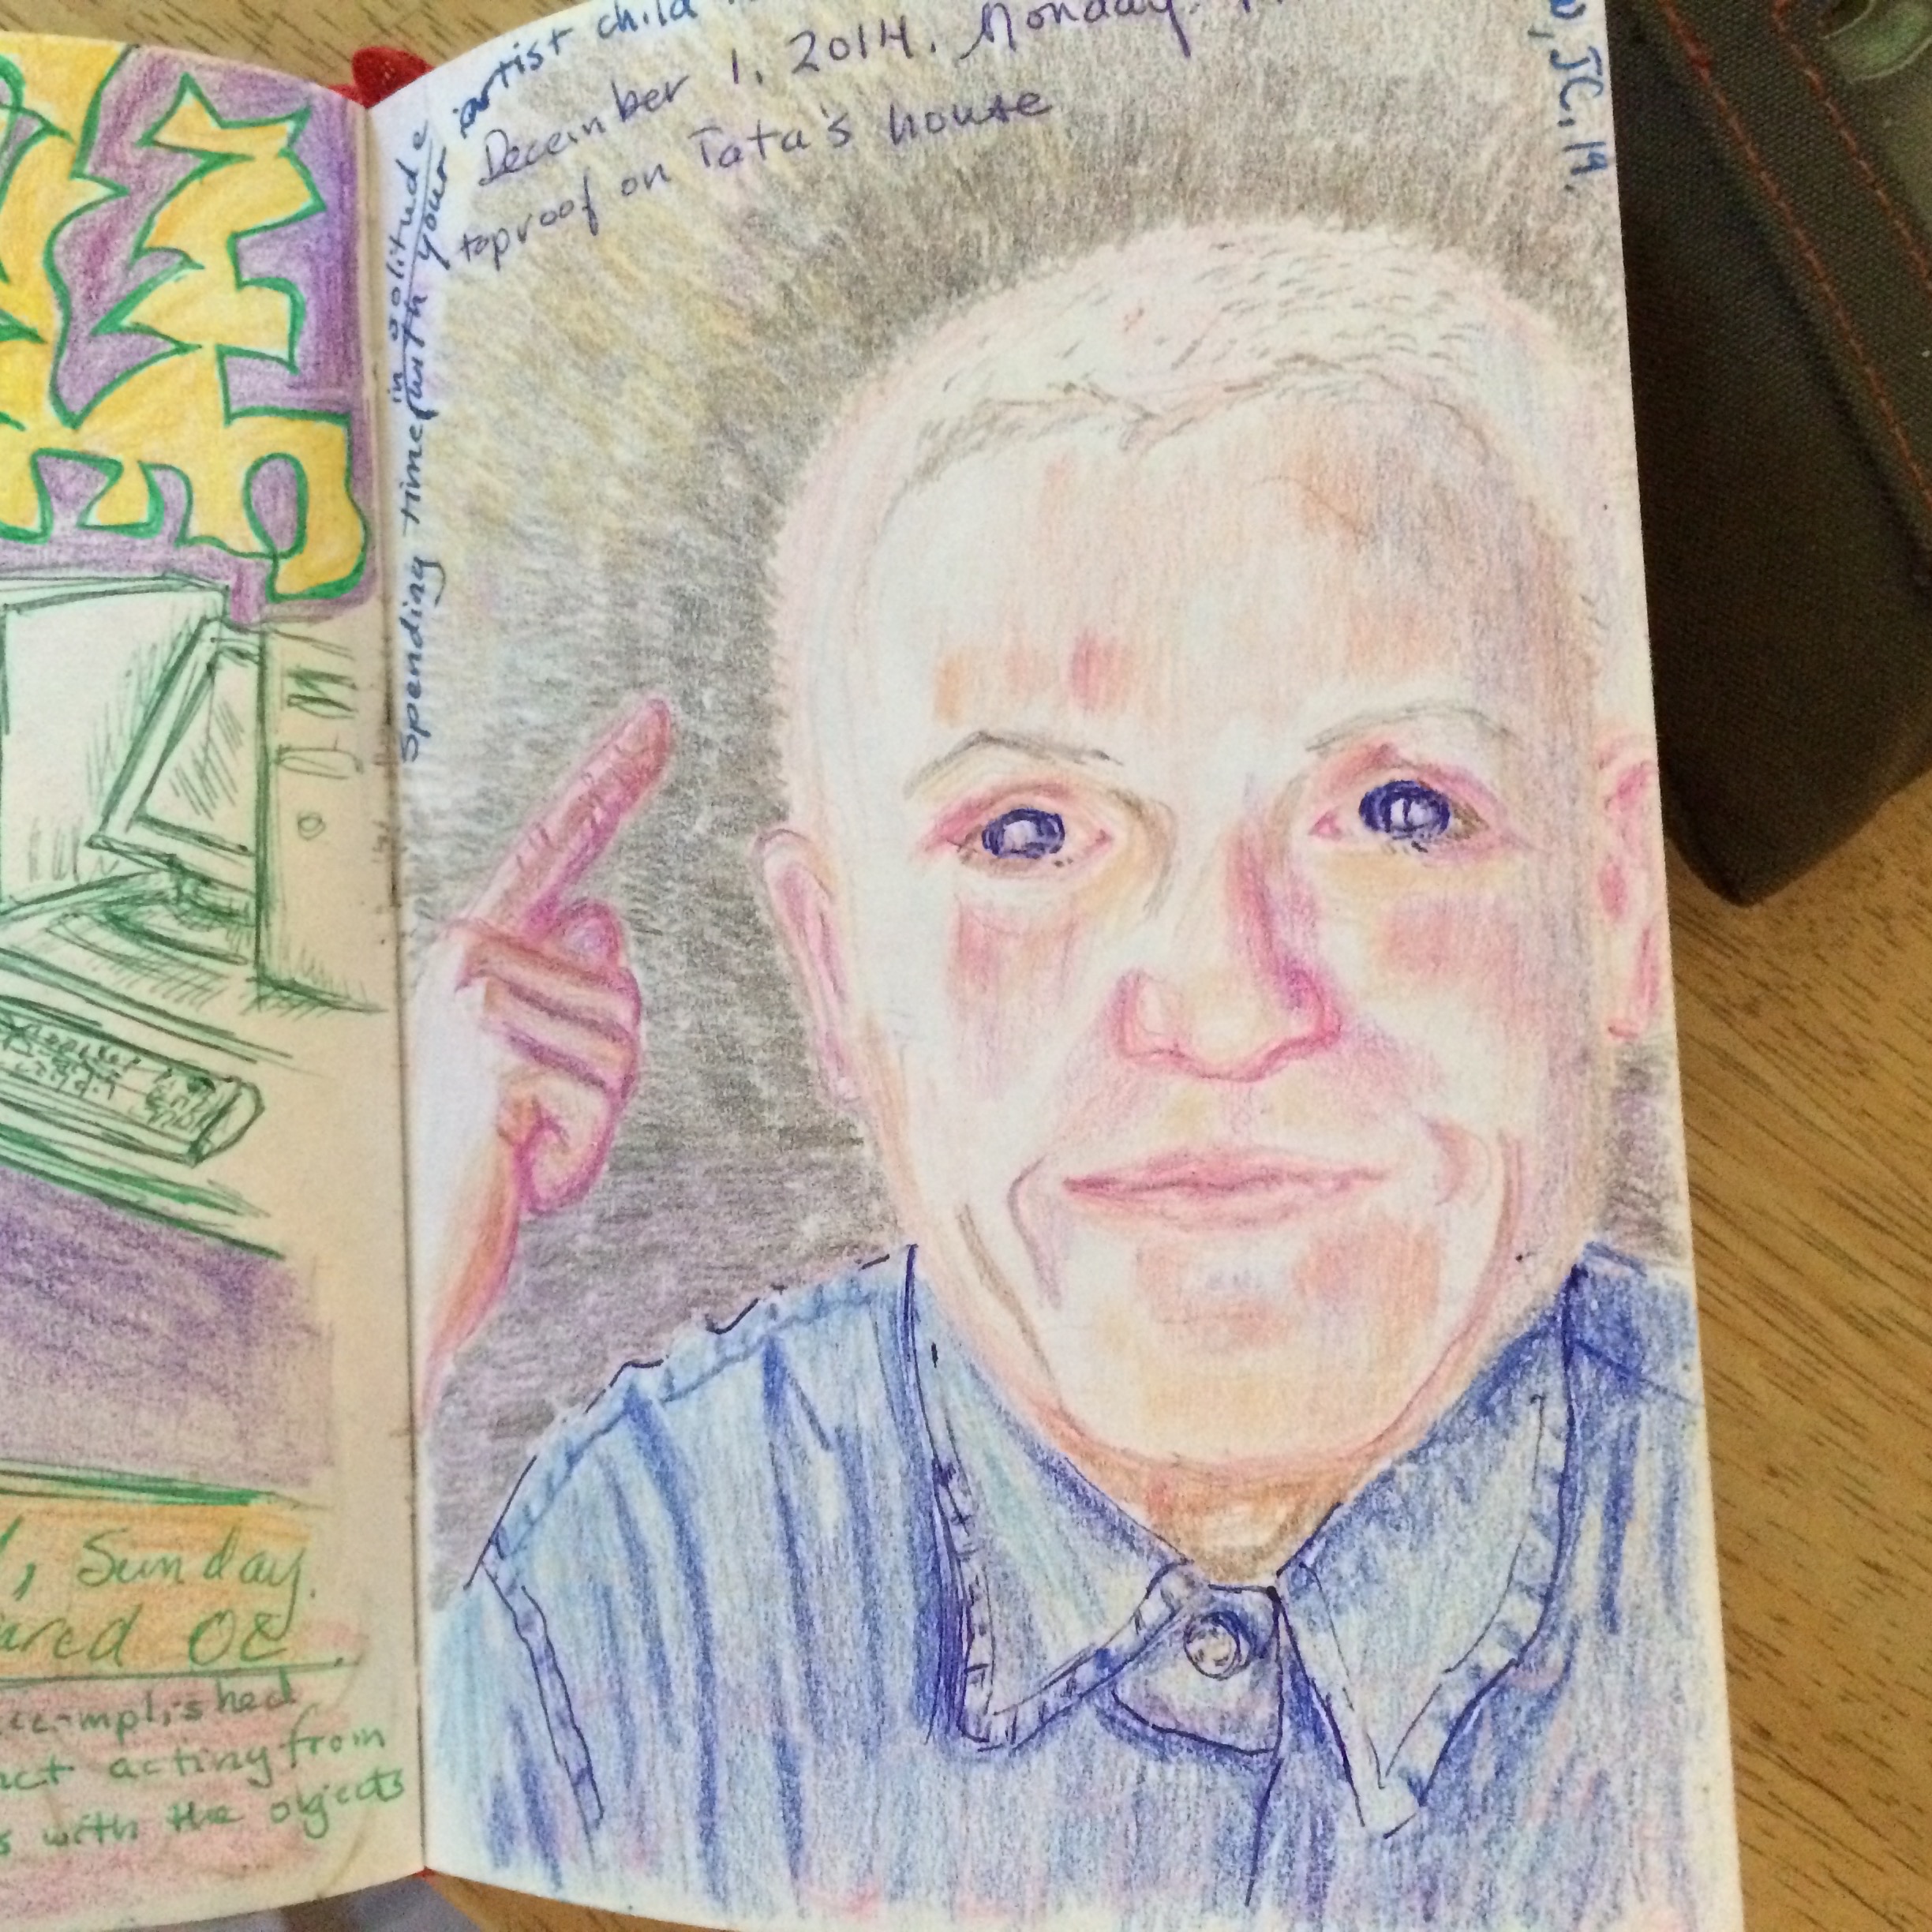 , Sunday.
OE
accomplished
act acting from
with the objects
Spending time in solitude
with your artist child
December 1, 2014. Monday.
toproof on Tata's house
JC, 19.